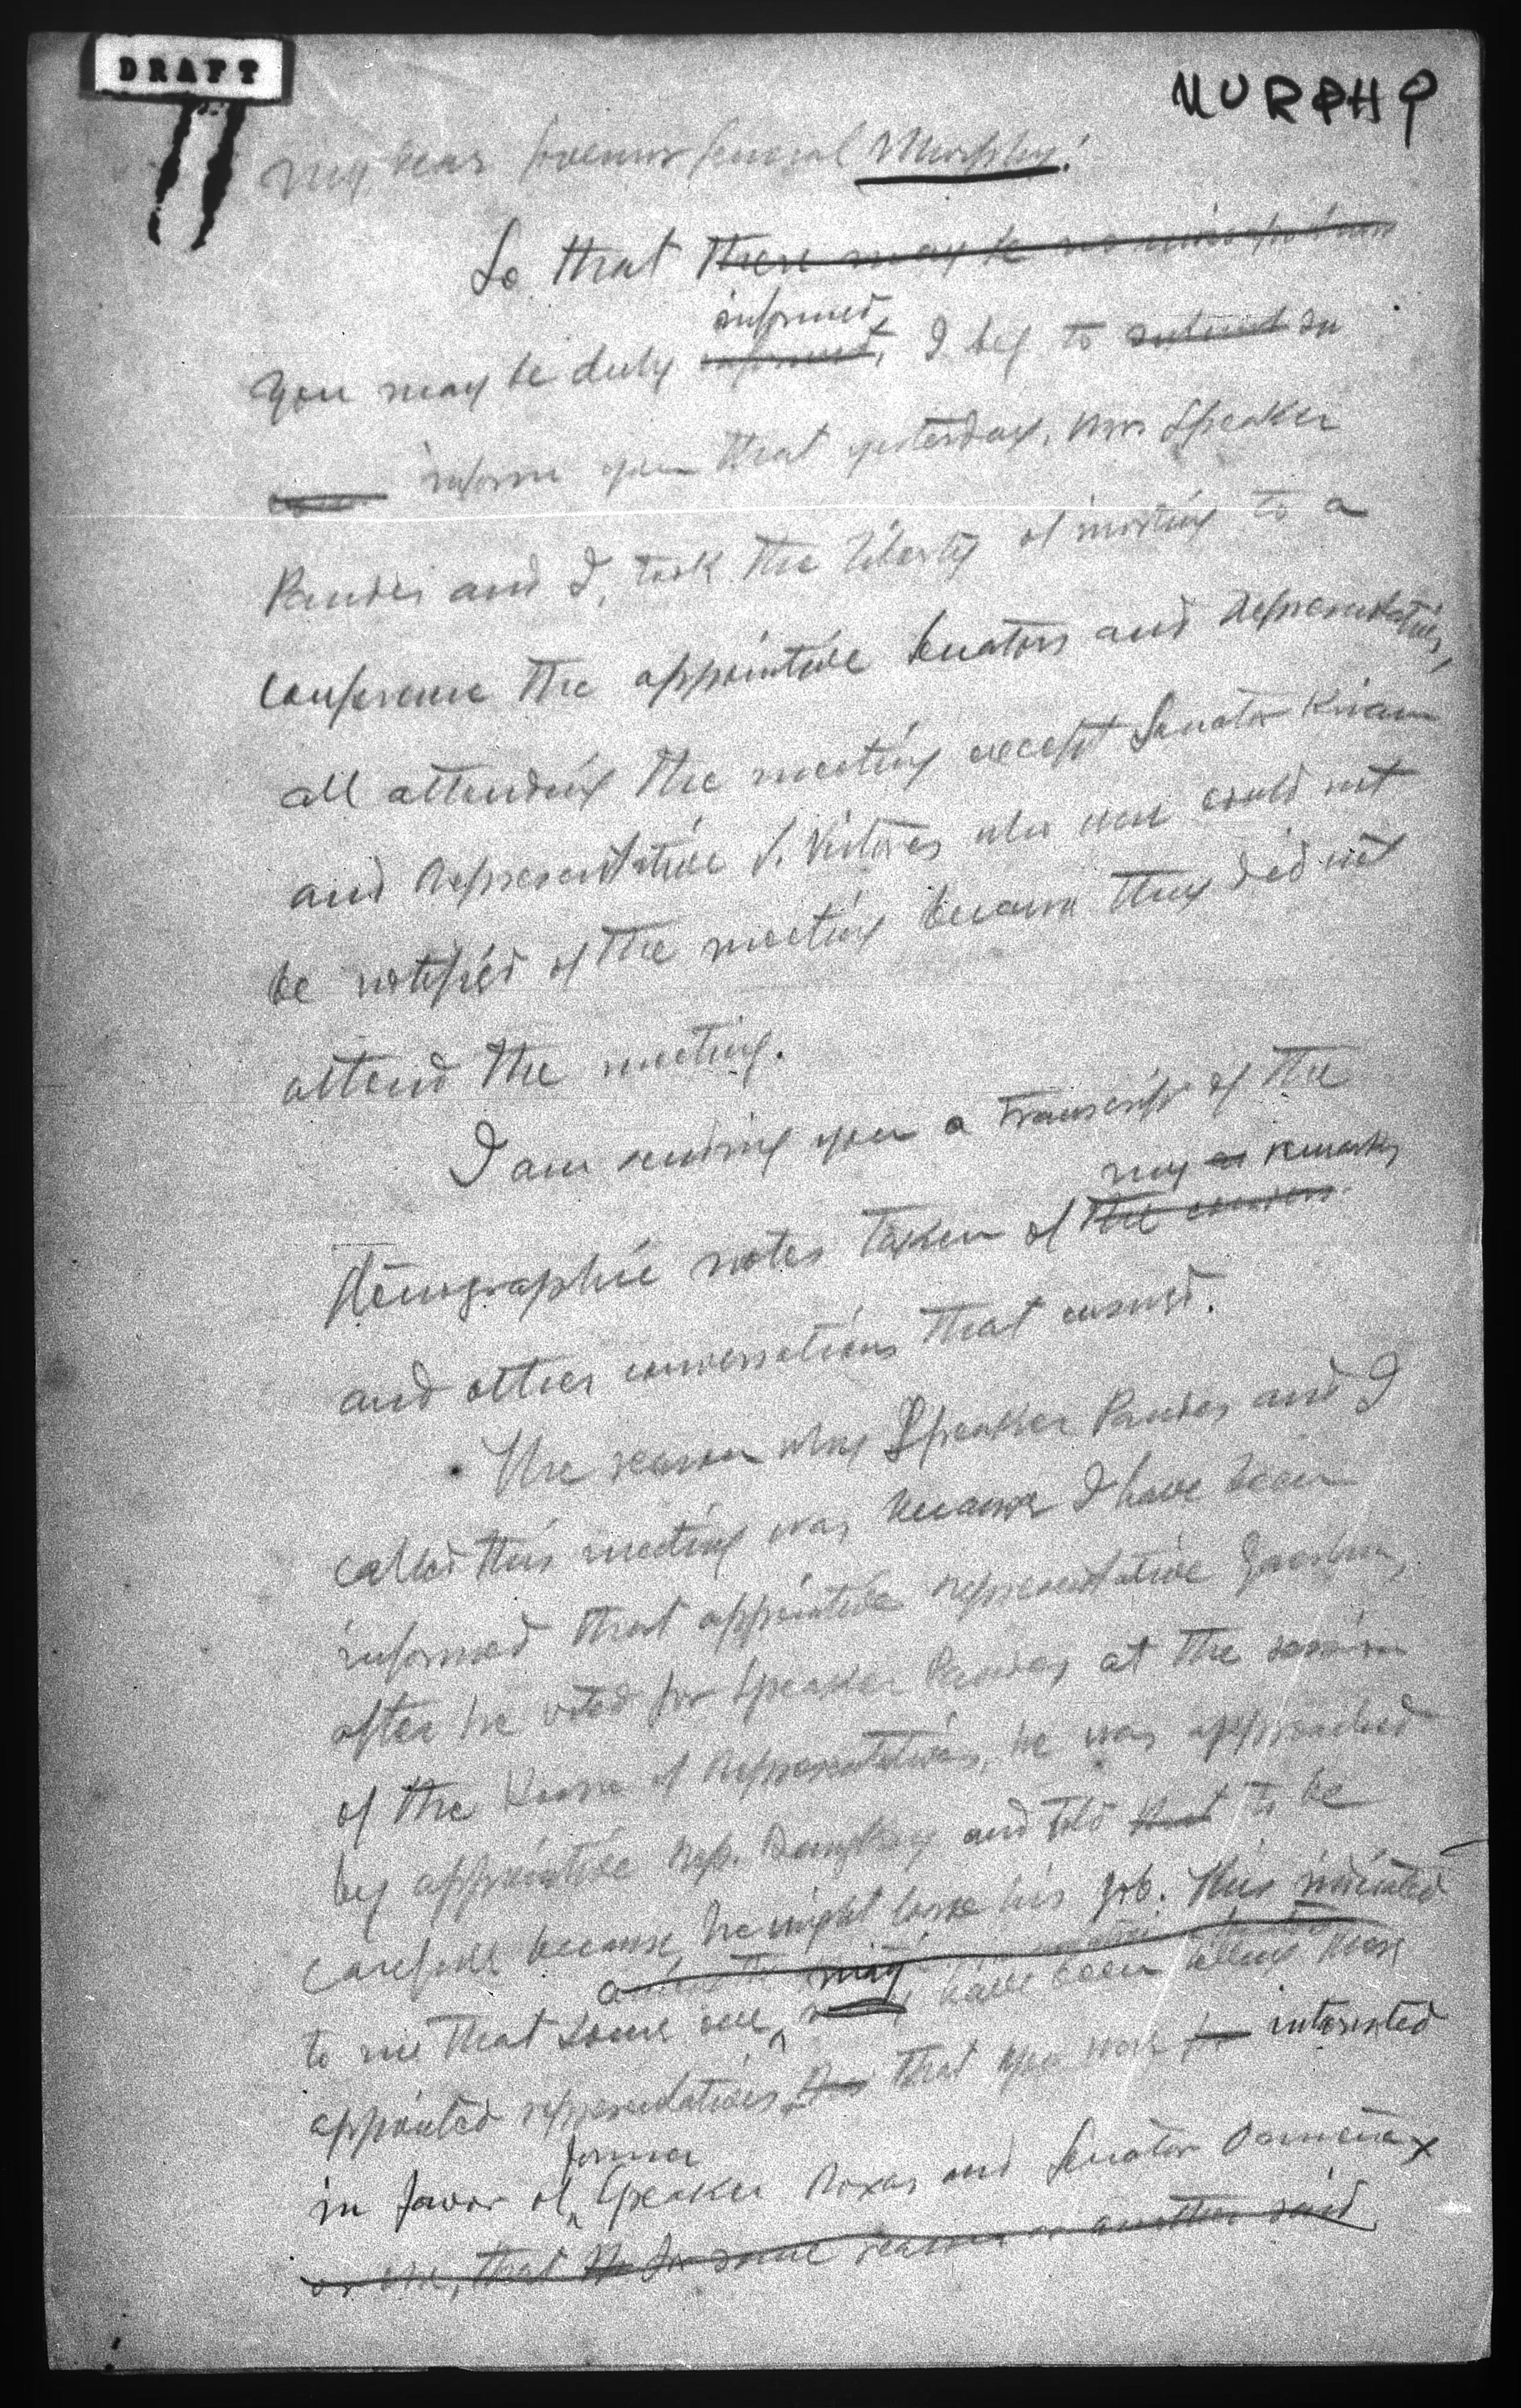 DRAFT
MURPHY
My dear Governor General Murphy:
So that there may be no
informed
you may be duly informed, I beg to submit
inform you that yesterday, Mr. Speaker
Paredes and I, took the liberty of inviting to a
conference the appointive Senators and Representatives,
all attending the meeting except Senator Kiram
and Representative S. who were could not
be notified of the meeting because they did not
attend the meeting.
I am sending you a transcript of the
my remarks
stenographic notes taken of the
and other conversations that ensued.
The reason why Speaker Paredes and I
called this meeting was because I have been
informed that appointive representative
after he voted for Speaker Paredes at the session
of the House of Representatives, he was approached
by appointive Rep. and told that to be
careful because he might lose his job. This indicated
may
to me that some one may have been telling these
appointed representatives that you were interested
former
in favor of Speaker Roxas and Senator Osmeña
or one, that for some reason or another said